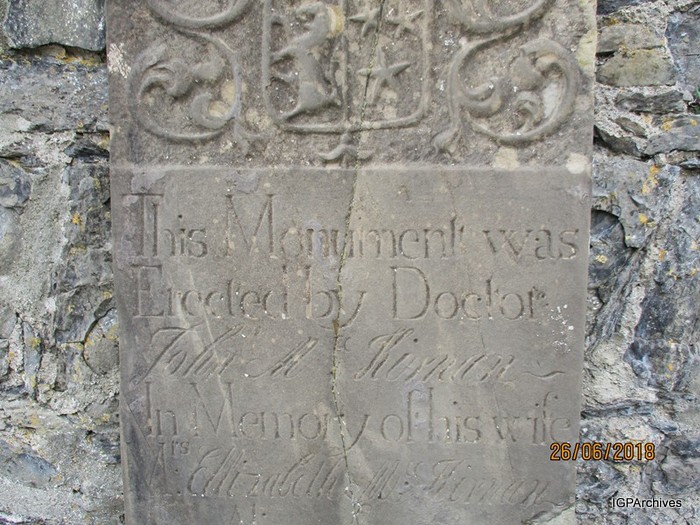 This Monument was
Erected by Doctor
John Mc
In Memory of his wife
Mrs Elizabeth Mc
26/06/2018
IGPArchives